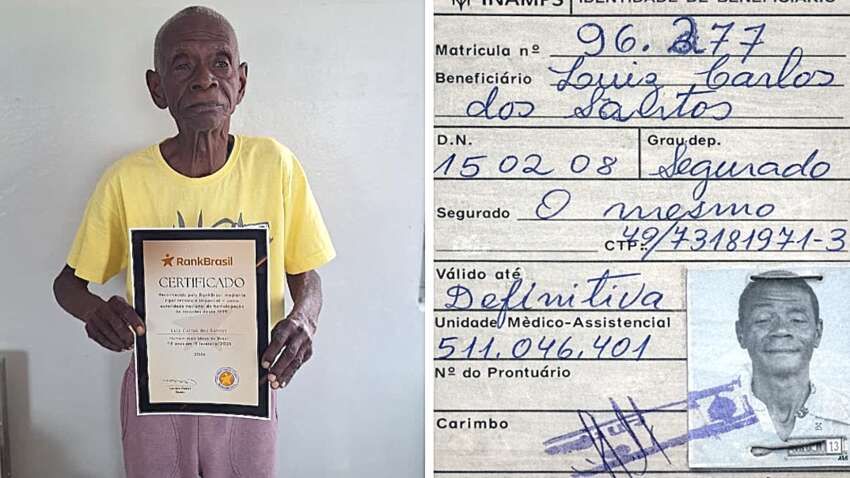 RankBrasil
CERTIFICADO
Reconhecido pelo RankBrasil mediante
desde 1999
Luiz Carlos dos Santos
INAMPS IDENTIDADE DE BENEFICIÁRIO
Matrícula nº 96.277
Beneficiário Luiz Carlos
dos Santos
D.N. Grau dep.
15 02 08 Segurado
Segurado O mesmo
CTP: 79/73181971-3
Válido até
Definitiva
Unidade Mèdico-Assistencial
511.046.401
Nº do Prontuário
Carimbo
13